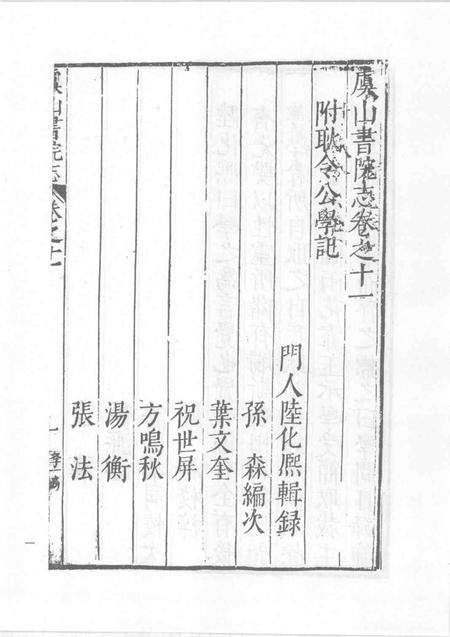 虞山書院志卷之十一
附耿令公學記
門人陸化熙輯録
孫森編次
葉文奎
祝世屏
方鳴秋
湯衡
張法
虞山書院志
卷之十一
一